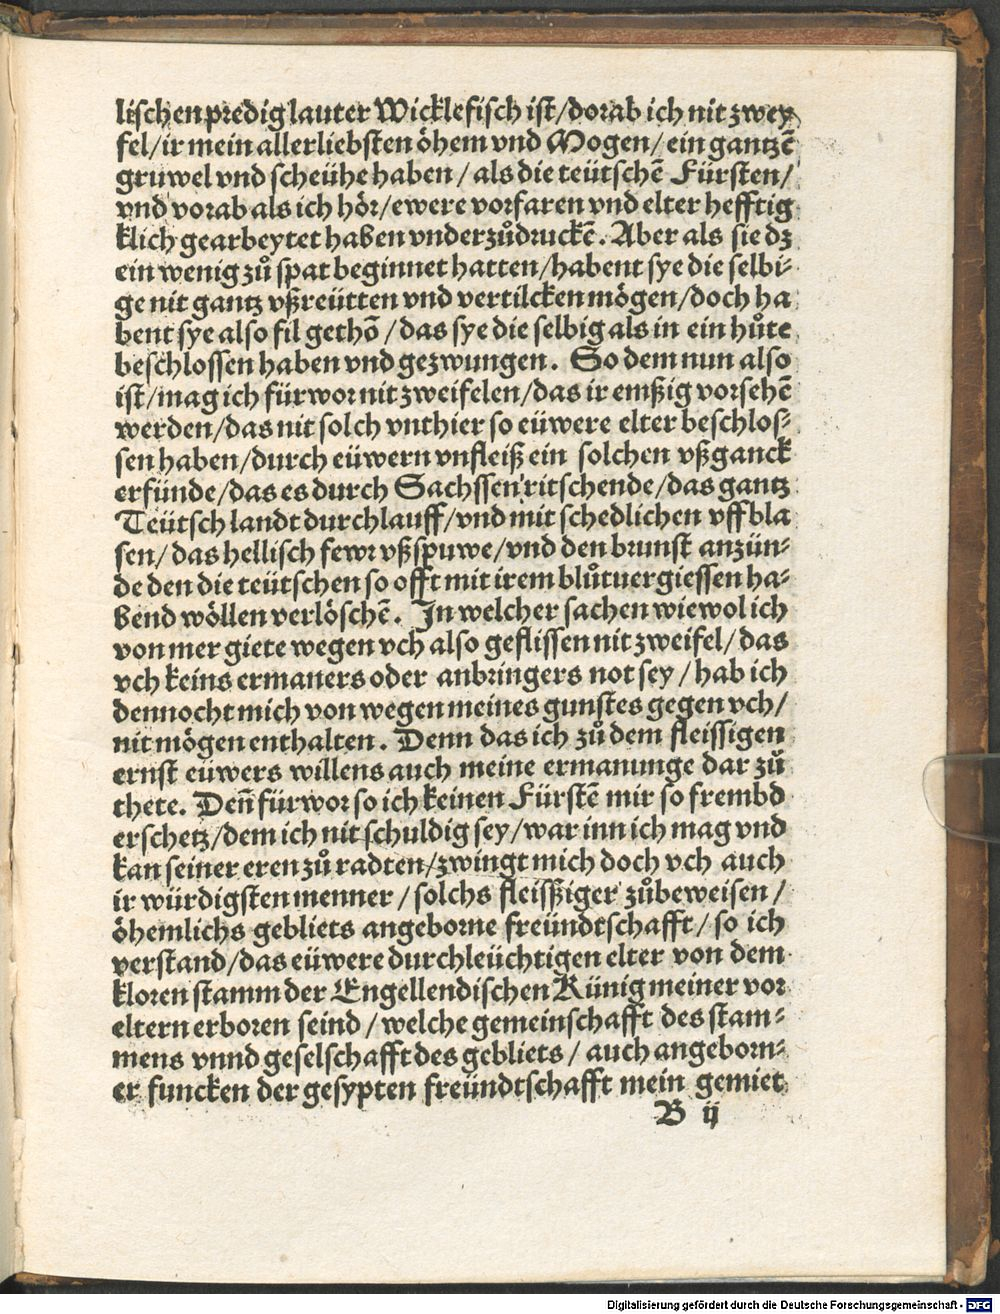 lischen predig lauter Wicklefisch ist/dorab ich nit zwey
fel/ir mein allerliebsten öhem vnd Mogen/ein gantzē
gruwel vnd scheühe haben/als die teütschē Fürsten/
vnd vorab als ich hör/ewere vorfaren vnd elter hefftig
klich gearbeytet haben vnderzůdruckē. Aber als sie dz
ein wenig zů spat beginnet hatten/habent sye die selbi-
ge nit gantz vßreütten vnd vertilcken mögen/doch ha
bent sye also fil gethō/das sye die selbig als in ein hůte
beschlossen haben vnd gezwungen. So dem nun also
ist/mag ich fürwor nit zweifelen/das ir emßig vorsehē
werden/das nit solch vnthier so eüwere elter beschlos-
sen haben/durch eüwern vnfleiß ein solchen vßganck
erfünde/das es durch Sachssen ritschende/das gantz
Teütsch landt durchlauff/vnd mit schedlichen vffbla
sen/das hellisch fewr vßspuwe/vnd den brunst anzün-
de den die teütschen so offt mit irem blůtuergiessen ha-
bend wöllen verlöschē. In welcher sachen wiewol ich
von mer giete wegen vch also geflissen nit zweifel/das
vch keins ermaners oder anbringers not sey/hab ich
dennocht mich von wegen meines gunstes gegen vch/
nit mögen enthalten. Denn das ich zů dem fleissigen
ernst eüwers willens auch meine ermanunge dar zů
thete. Deñ fürwor so ich keinen Fürstē mir so frembd
erschetz/dem ich nit schuldig sey/war inn ich mag vnd
kan seiner eren zů radten/zwingt mich doch vch auch
ir würdigsten menner/solchs fleissiger zůbeweisen/
öhemlichs gebliets angeborne freündtschafft/so ich
verstand/das eüwere durchleüchtigen elter von dem
kloren stamm der Engellendischen Künig meiner vor
eltern erboren seind/welche gemeinschafft des stam-
mens vnnd geselschafft des gebliets/auch angeborn-
er funcken der gesypten freündtschafft mein gemiet
B ij
Digitalisierung gefördert durch die Deutsche Forschungsgemeinschaft - DFG